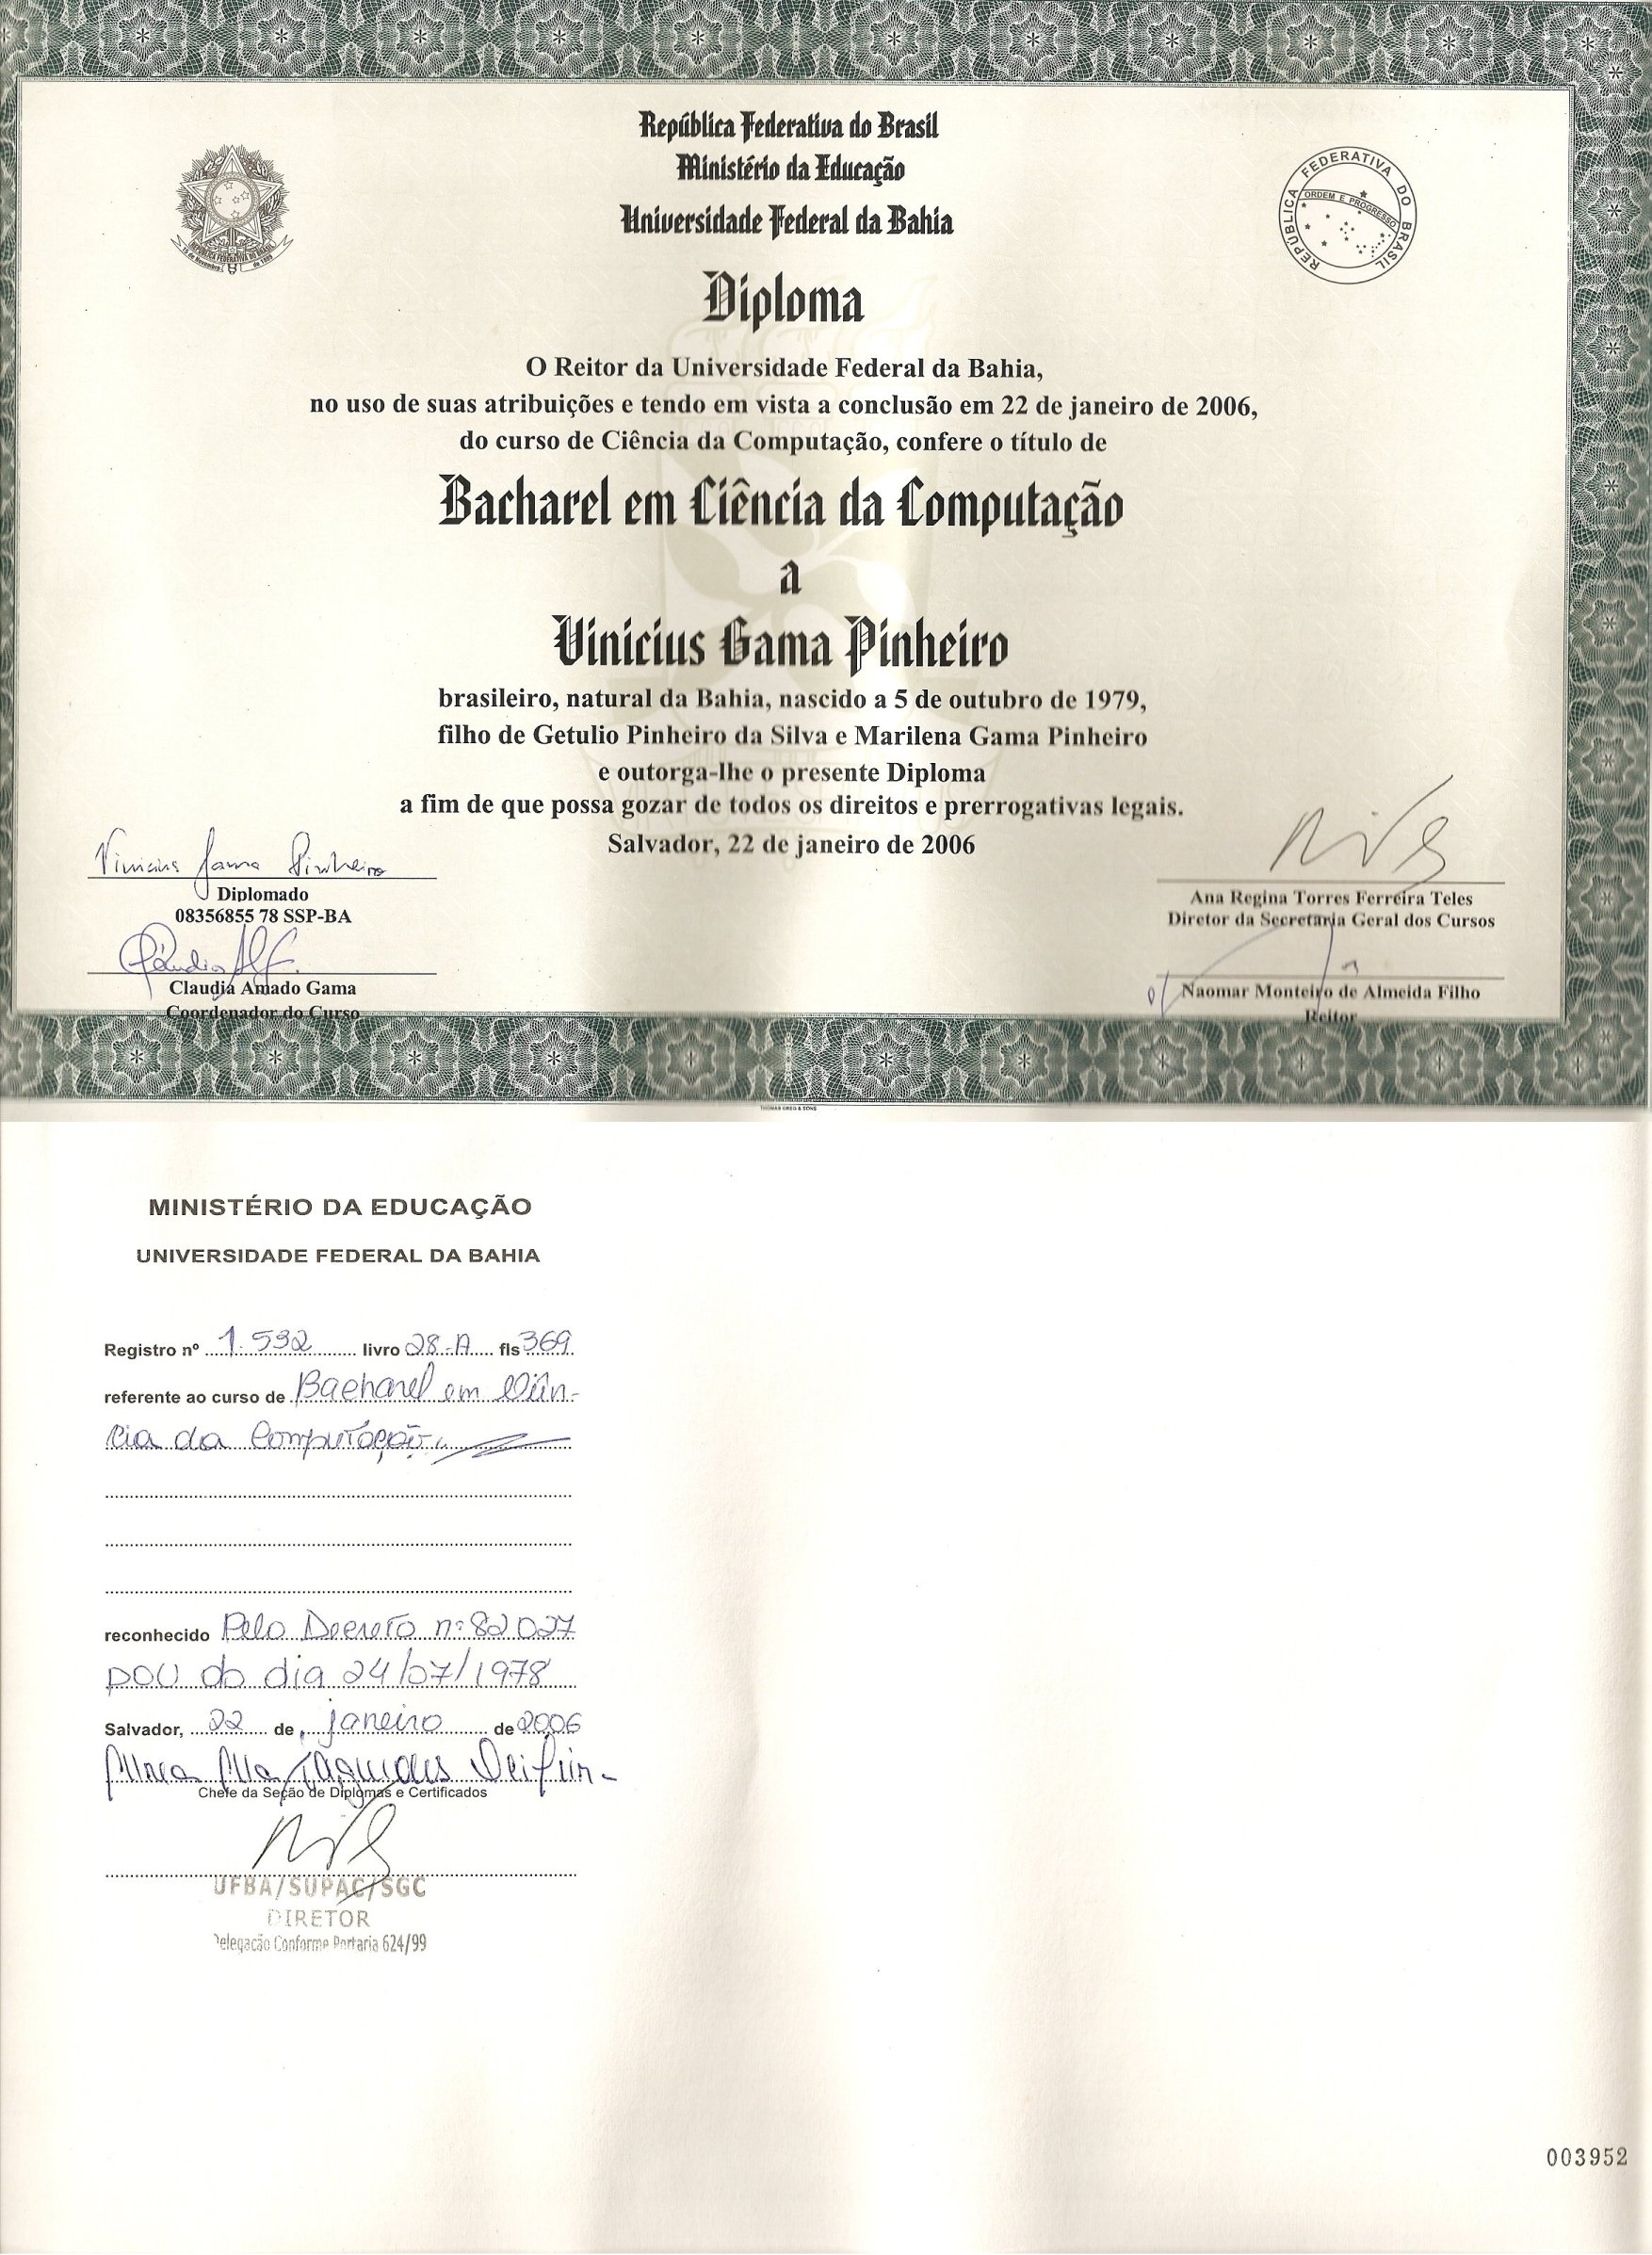 República Federativa do Brasil
Ministério da Educação
Universidade Federal da Bahia
REPÚBLICA FEDERATIVA DO BRASIL
ORDEM E PROGRESSO
Diploma
O Reitor da Universidade Federal da Bahia,
no uso de suas atribuições e tendo em vista a conclusão em 22 de janeiro de 2006,
do curso de Ciência da Computação, confere o título de
Bacharel em Ciência da Computação
a
Vinicius Gama Pinheiro
brasileiro, natural da Bahia, nascido a 5 de outubro de 1979,
filho de Getulio Pinheiro da Silva e Marilena Gama Pinheiro
e outorga-lhe o presente Diploma
a fim de que possa gozar de todos os direitos e prerrogativas legais.
Salvador, 22 de janeiro de 2006
Vinicius Gama Pinheiro
Diplomado
08356855 78 SSP-BA
Claudia Amado Gama
Coordenador do Curso
Ana Regina Torres Ferreira Teles
Diretor da Secretaria Geral dos Cursos
Naomar Monteiro de Almeida Filho
Reitor
THOMAS GREG & SONS
MINISTÉRIO DA EDUCAÇÃO
UNIVERSIDADE FEDERAL DA BAHIA
Registro nº 1.532 livro 28-A fls 369
referente ao curso de Bacharel em Ciên-
cia da Computação
reconhecido Pelo Decreto nº 82027
DOU do dia 24/07/1978
Salvador, 22 de janeiro de 2006
Chefe da Seção de Diplomas e Certificados
UFBA/SUPAC/SGC
DIRETOR
Delegação Conforme Portaria 624/99
003952